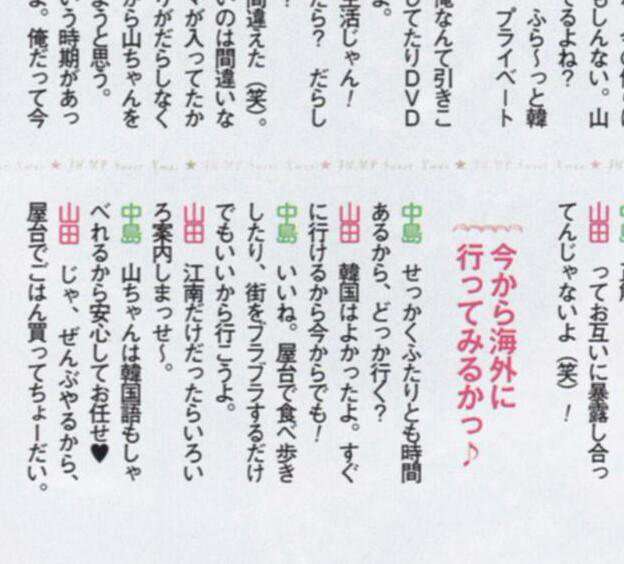 もしんない。山
てるよね？
ふら〜っと韓
プライベート
俺なんて引きこ
してたりDVD
よ。
生活じゃん！
たら？　だらし
？
間違えた（笑）。
いのは間違いな
が入ってたか
りがだらしなく
から山ちゃんを
ようと思う。
いう時期があっ
よ。俺だって今
山田　ってお互いに暴露し合っ
てんじゃないよ（笑）！
今から海外に
行ってみるかっ♪
中島　せっかくふたりとも時間
あるから、どっか行く？
山田　韓国はよかったよ。すぐ
に行けるから今からでも！
中島　いいね。屋台で食べ歩き
したり、街をブラブラするだけ
でもいいから行こうよ。
山田　江南だけだったらいろい
ろ案内しまっせ〜。
中島　山ちゃんは韓国語もしゃ
べれるから安心してお任せ♥
山田　じゃ、ぜんぶやるから、
屋台でごはん買ってちょーだい。